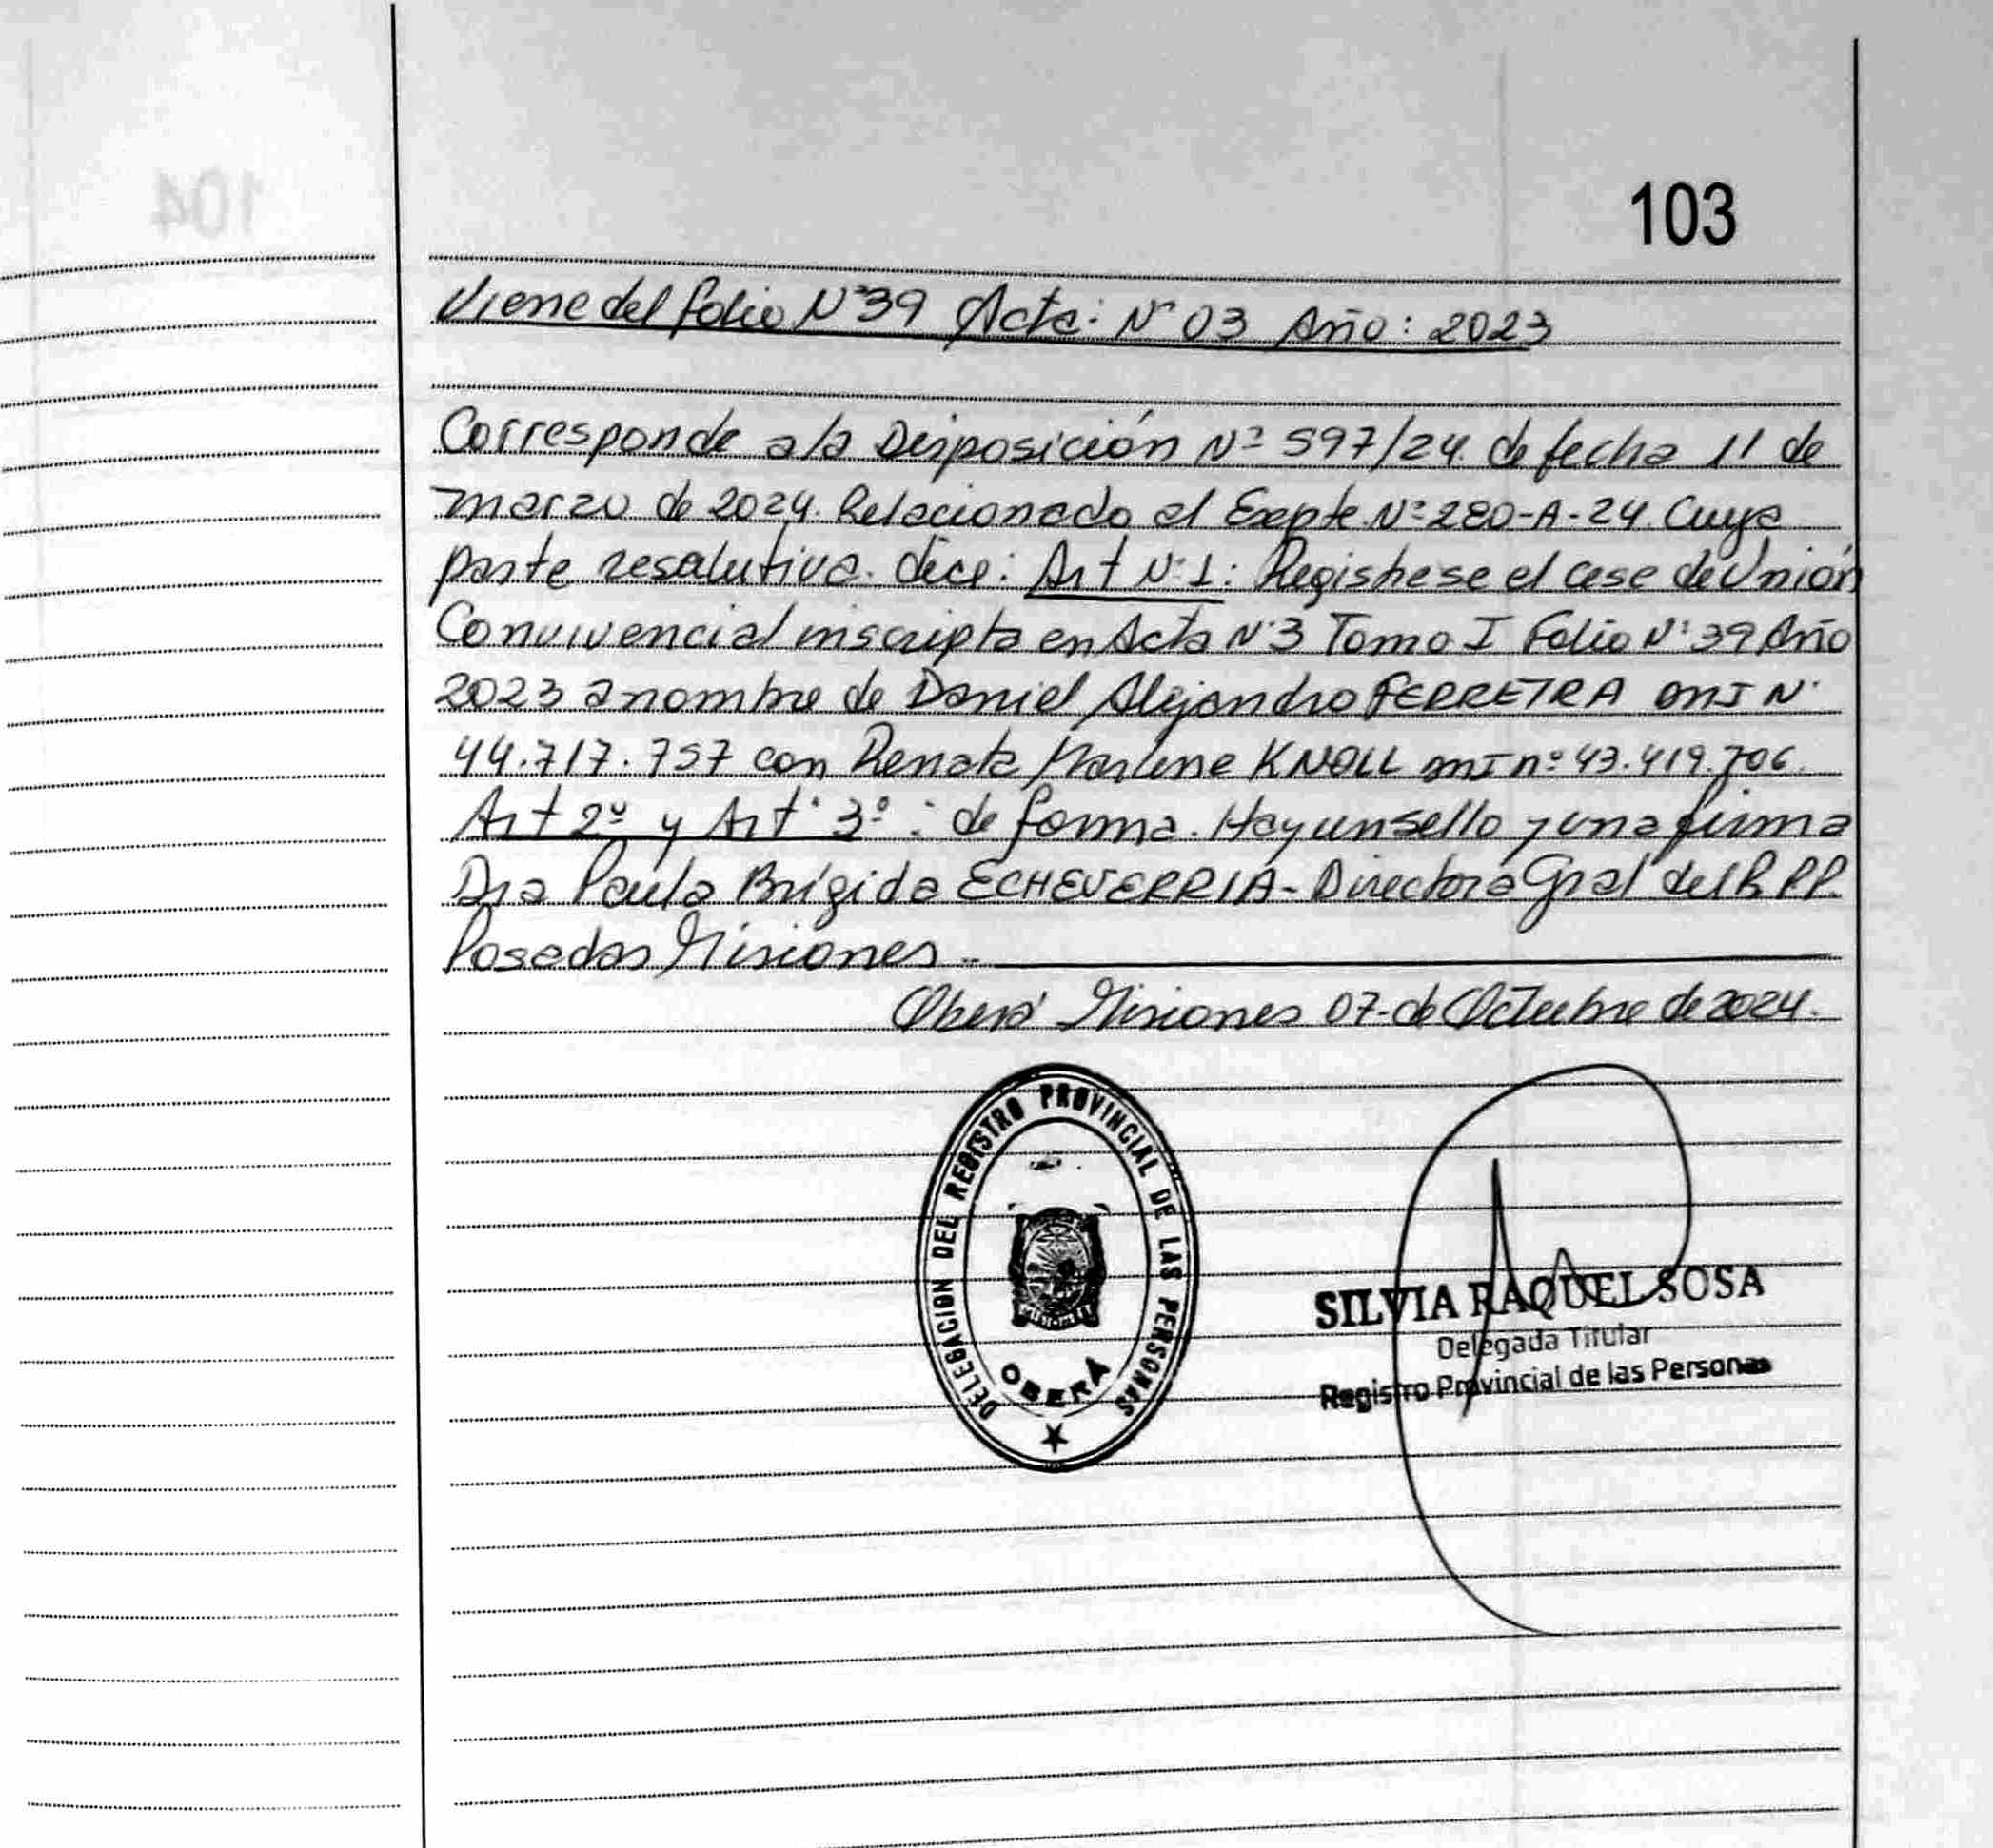 104
103
Viene del folio N°39 Acta: N° 03 Año: 2023
Corresponde a la Disposición N° 597/24. de fecha 11 de
marzo de 2024. Relacionado al Expte N° 280-A-24. Cuya
parte resolutiva. dice: Art N°1: Registrese el cese de Unión
Convivencial inscripta en Acta N°3 Tomo I Folio N° 39 Año
2023 a nombre de Daniel Alejandro FERREIRA MI N°
44.717.757 con Renata Marlene KNOLL MI n° 43.419.706.
Art 2° y Art° 3°: de forma. Hay un sello y una firma
Dra Paula Brígida ECHEVERRIA - Directora Gral del R.PP.
Posadas Misiones -
Oberá Misiones 07 de Octubre de 2024.
DELEGACION DEL REGISTRO PROVINCIAL DE LAS PERSONAS
OBERÁ
SILVIA RAQUEL SOSA
Delegada Titular
Registro Provincial de las Personas